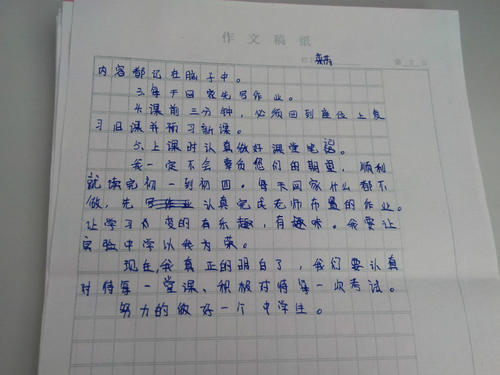 作文稿纸
内容都记在脑子中。
3.每天回家先写作业。
4.课前三分钟，必须回到座位上复
习旧课并预习新课。
5.上课时认真做好课堂笔记。
我一定不会辜负您们的期望，顺利
就读完初一到初四。每天回家什么都不
做，先写作业认真完成老师布置的作业。
让学习变的有乐趣，有趣味。我要让
实验中学以我为荣。
现在我真正的明白了，我们要认真
对待每一堂课、积极对待每一次考试。
努力的做好一个中学生。